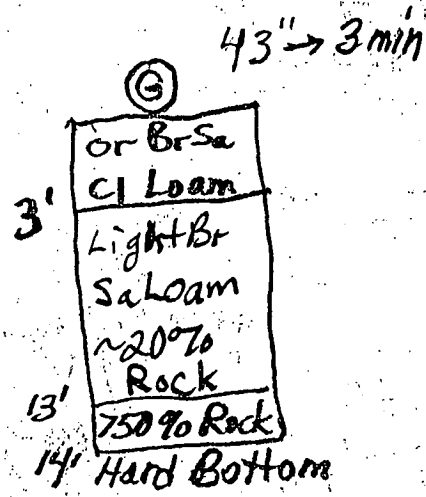 43" → 3 min
G
or BrSa
Cl Loam
3'
Light Br
Sa Loam
~20%
Rock
13'
>50% Rock
14' Hard Bottom